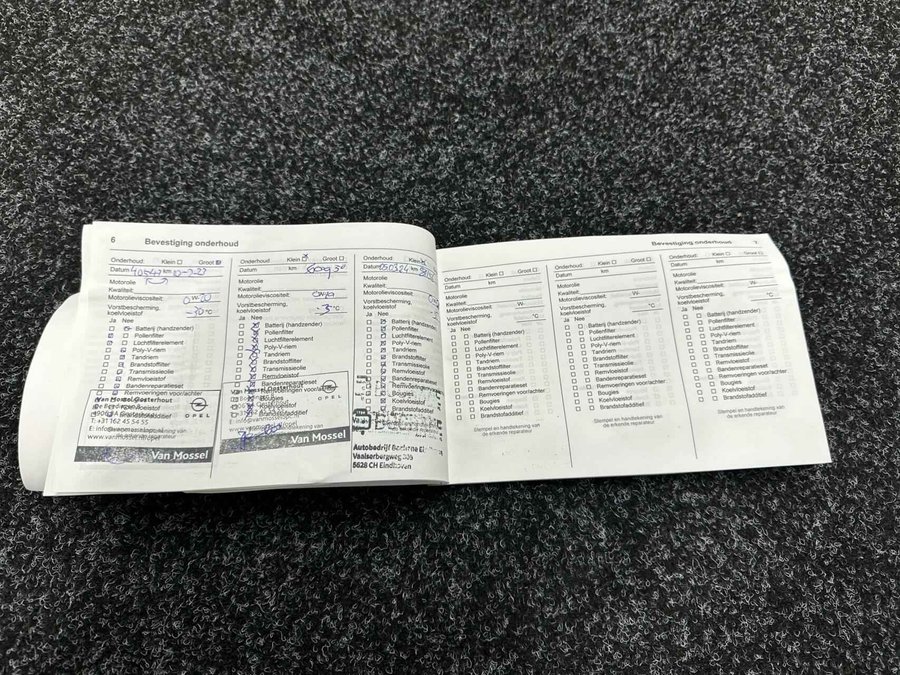 6 Bevestiging onderhoud
Onderhoud: Klein Groot
Datum km 10-7-23
Motorolie
Kwaliteit:
Motorolieviscositeit: 0W-20
Vorstbescherming, koelvloeistof -30 °C
Ja Nee
Batterij (handzender)
Pollenfilter
Luchtfilterelement
Poly-V-riem
Tandriem
Brandstoffilter
Transmissieolie
Remvloeistof
Bandenreparatieset
Remvoeringen voor/achter
Van Mossel Oosterhout
T: +31 162 45 54 55
OPEL
Van Mossel
Onderhoud: Klein Groot
Datum km
Motorolie
Kwaliteit:
Motorolieviscositeit:
Vorstbescherming, koelvloeistof °C
Ja Nee
Batterij (handzender)
Pollenfilter
Luchtfilterelement
Poly-V-riem
Tandriem
Brandstoffilter
Transmissieolie
Remvloeistof
Bandenreparatieset
Van Mossel Oosterhout
OPEL
Brandstofadditief
Van Mossel
Onderhoud: Klein
Datum 050324
Motorolie
Kwaliteit:
Motorolieviscositeit:
Vorstbescherming, koelvloeistof
Ja Nee
Batterij (handzender)
Pollenfilter
Luchtfilterelement
Poly-V-riem
Tandriem
Brandstoffilter
Transmissieolie
Remvloeistof
Bandenreparatieset
Remvoeringen
Autobedrijf
Vaalserbergweg
5628 CH Eindhoven
Bevestiging onderhoud 7
Onderhoud: Klein Groot
Datum km
Motorolie
Kwaliteit:
Motorolieviscositeit: W-
Vorstbescherming, koelvloeistof °C
Ja Nee
Batterij (handzender)
Pollenfilter
Luchtfilterelement
Poly-V-riem
Tandriem
Brandstoffilter
Transmissieolie
Remvloeistof
Bandenreparatieset
Remvoeringen voor/achter
Bougies
Koelvloeistof
Brandstofadditief
Stempel en handtekening van
de erkende reparateur
Onderhoud: Klein Groot
Datum km
Motorolie
Kwaliteit:
Motorolieviscositeit: W-
Vorstbescherming, koelvloeistof °C
Ja Nee
Batterij (handzender)
Pollenfilter
Luchtfilterelement
Poly-V-riem
Tandriem
Brandstoffilter
Transmissieolie
Remvloeistof
Bandenreparatieset
Remvoeringen voor/achter
Bougies
Koelvloeistof
Brandstofadditief
Stempel en handtekening van
de erkende reparateur
Onderhoud: Klein Groot
Datum km
Motorolie
Kwaliteit:
Motorolieviscositeit: W-
Vorstbescherming, koelvloeistof °C
Ja Nee
Batterij (handzender)
Pollenfilter
Luchtfilterelement
Poly-V-riem
Tandriem
Brandstoffilter
Transmissieolie
Remvloeistof
Bandenreparatieset
Remvoeringen voor/achter
Bougies
Koelvloeistof
Brandstofadditief
Stempel en handtekening van
de erkende reparateur